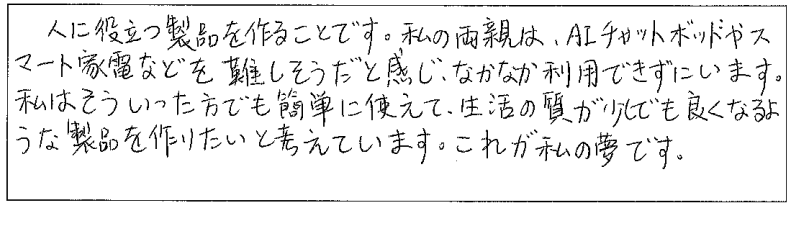 人に役立つ製品を作ることです。私の両親は、AIチャットボッドやス
マート家電などを難しそうだと感じ、なかなか利用できずにいます。
私はそういった方でも簡単に使えて、生活の質が少しでも良くなるよ
うな製品を作りたいと考えています。これが私の夢です。